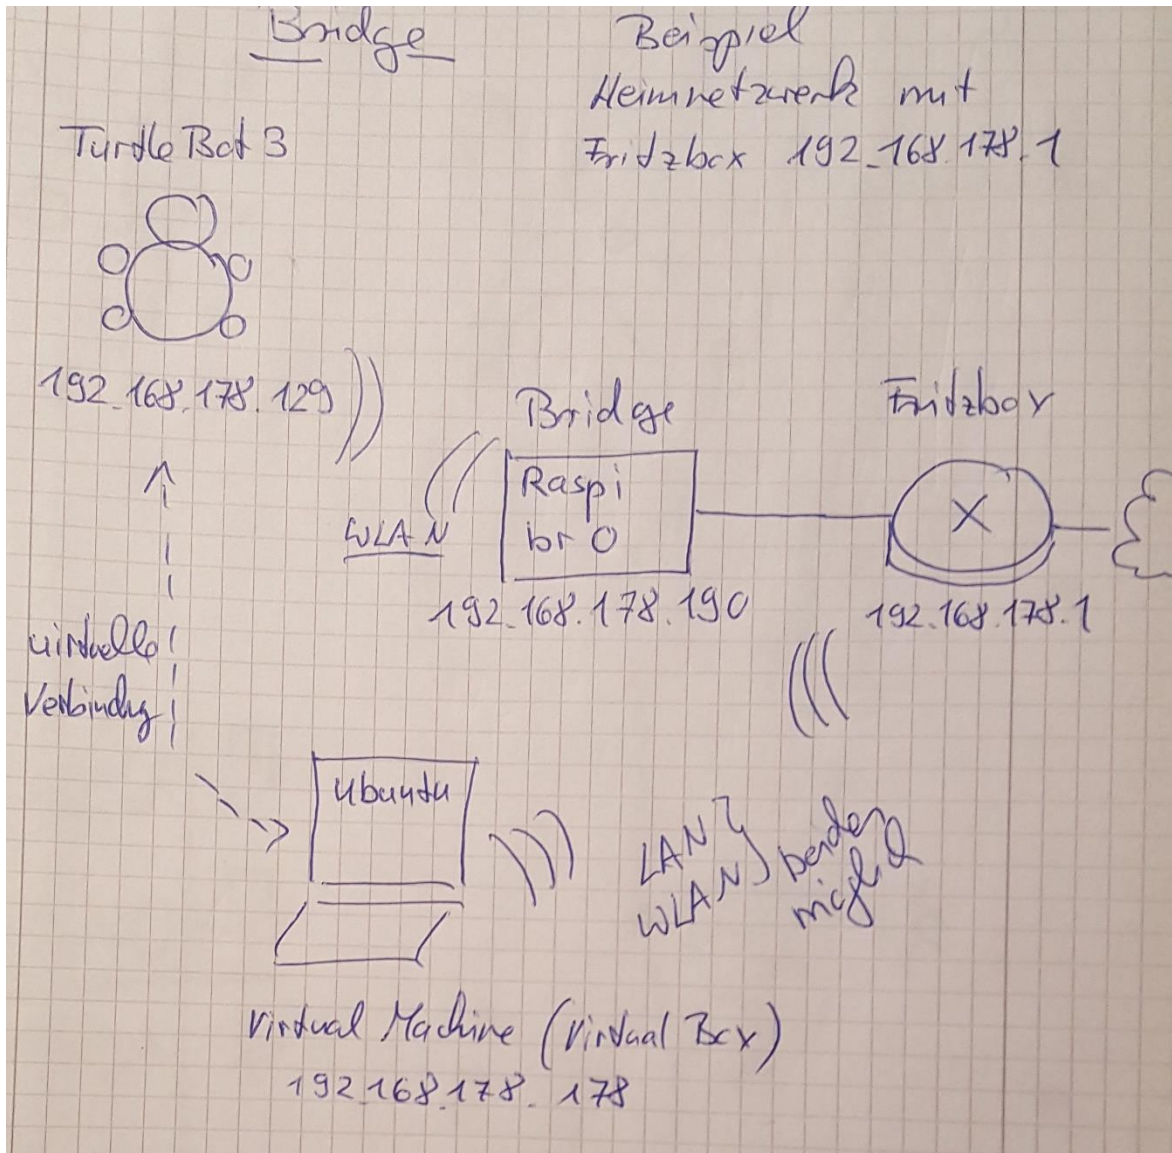 Bridge
Beispiel
Heimnetzwerk mit
Fritzbox 192.168.178.1
TurtleBot 3
192.168.178.129
Bridge
Raspi
br 0
192.168.178.190
WLAN
Fritzbox
X
192.168.178.1
virtuelle
Verbindung
Ubuntu
LAN
WLAN
beides
möglich
Virtual Machine (Virtual Box)
192.168.178.178